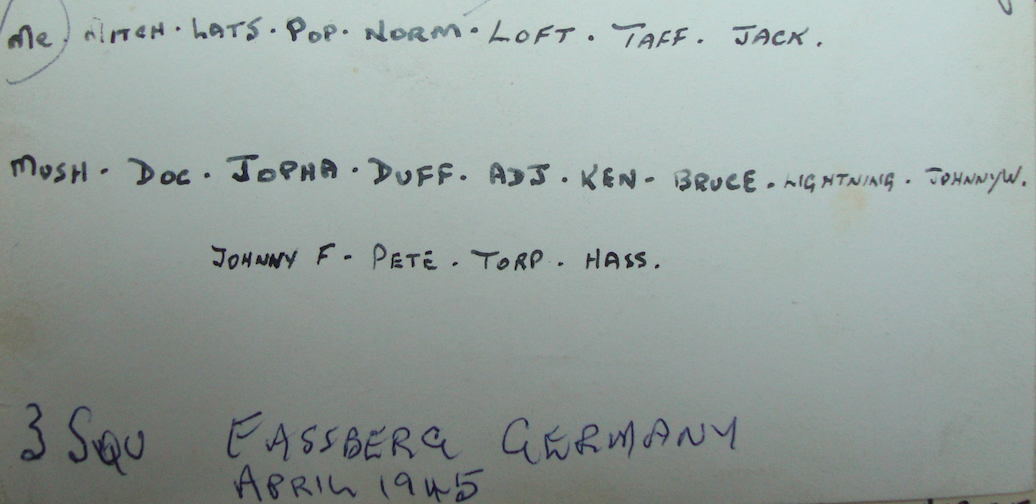 Me. MITCH · LATS · POP · NORM · LOFT · TAFF · JACK.
MUSH · DOC · JOPHA · DUFF · ADJ · KEN - BRUCE · LIGHTNING · JOHNNY W.
JOHNNY F - PETE · TORP · HASS.
3 SQU FASSBERG GERMANY
APRIL 1945